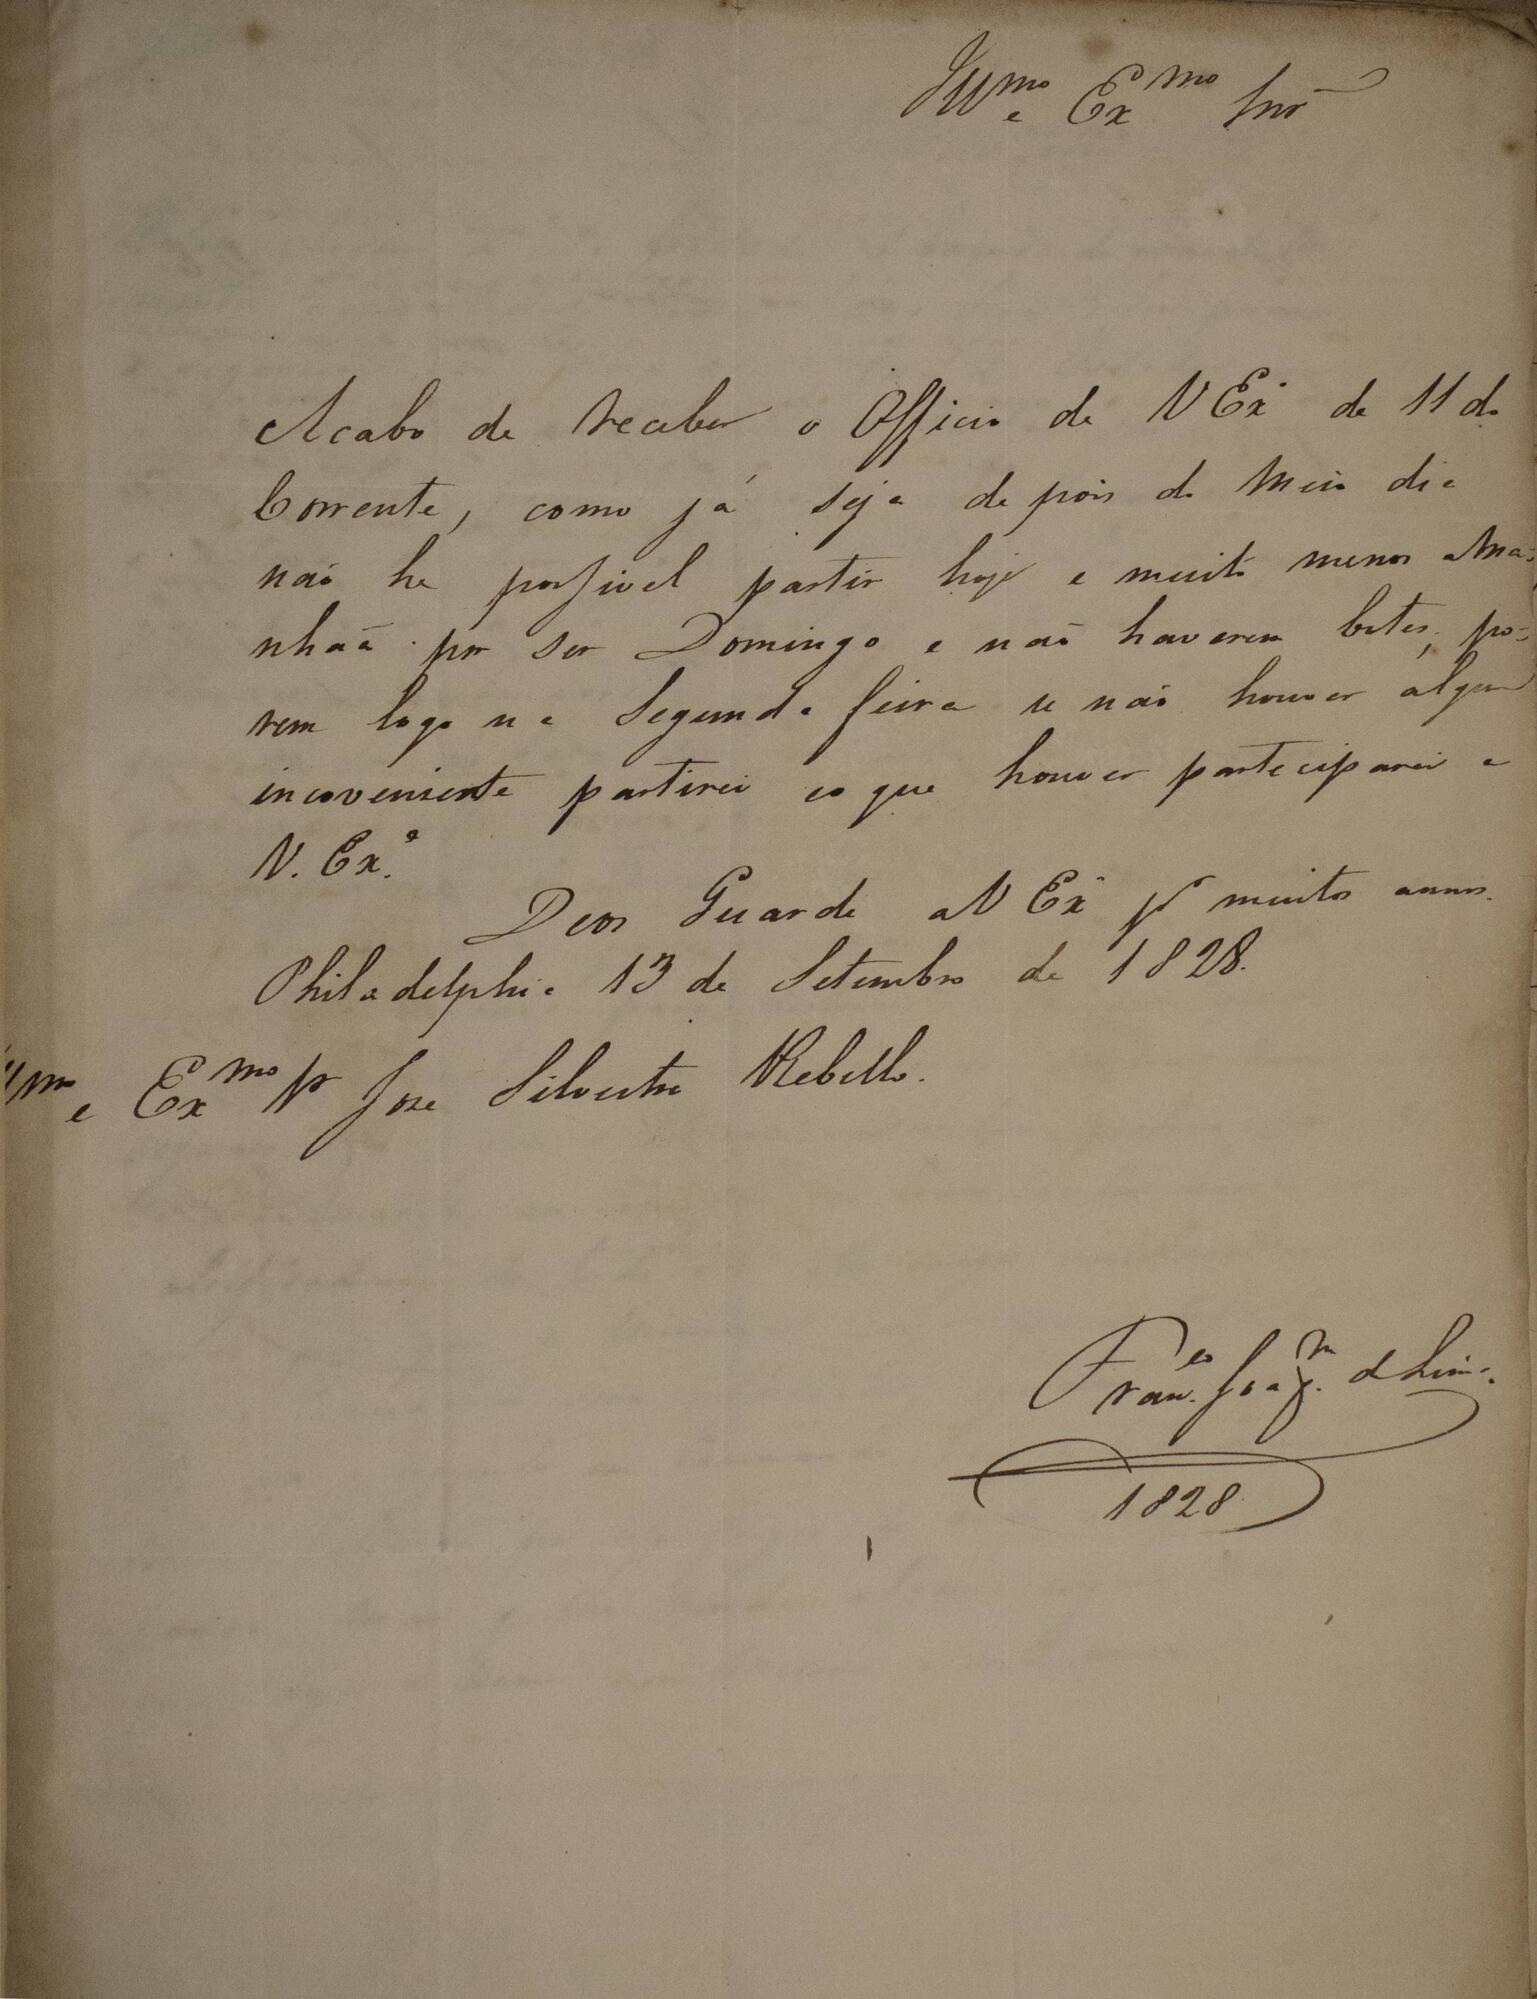 Illmo e Exmo Snr
Acabo de receber o Officio de V Exa de 11 do
Corrente, como já seja depois do Meio dia
não he possivel partir hoje e muito menos ama=
nhaã por ser Domingo e não haverem botes, po=
rem logo na Segunda feira se não houver algum
incoveniente partirei eo que houver parteciparei a
V. Exa.
Deos Guarde a V Exa pr muitos annos.
Philadelphia 13 de Setembro de 1828.
Illmo e Exmo Sr Jose Silvestre Rebello.
Franco. Joaqm. de Lima.
1828